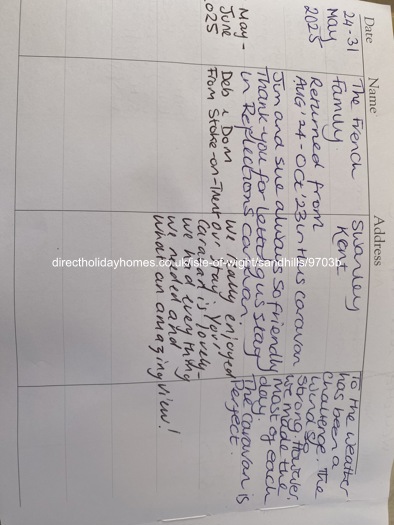 Date Name Address
24-31 The French Swanley To the weather
May Family. Kent has been a
2025 challenge. The
Returned from wind so
AUG '24 - Oct '23 in this caravan strong. However,
Jim and Sue always so friendly we made the
Thank-you for letting us stay most of each
in Reflections caravan day.
The caravan is
Perfect.
May - Deb & Dom We really enjoyed
June From Stoke-on-Trent our stay. Your
2025 caravan is lovely -
we had everything
we needed and
what an amazing view!
directholidayhomes.co.uk/isle-of-wight/sandhills/9703b